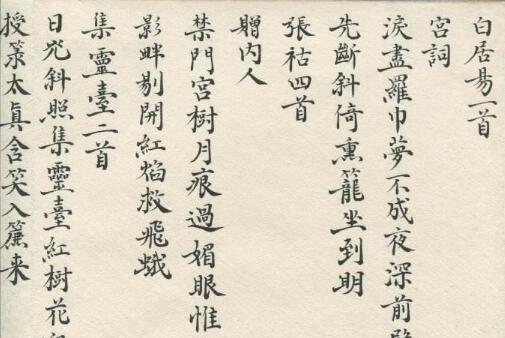 白居易一首
宮詞
淚盡羅巾夢不成夜深前殿
先斷斜倚熏籠坐到明
張祜四首
贈內人
禁門宮樹月痕過媚眼惟
影畔剔開紅焰救飛蛾
集靈臺二首
日光斜照集靈臺紅樹花
授籙太真含笑入簾来